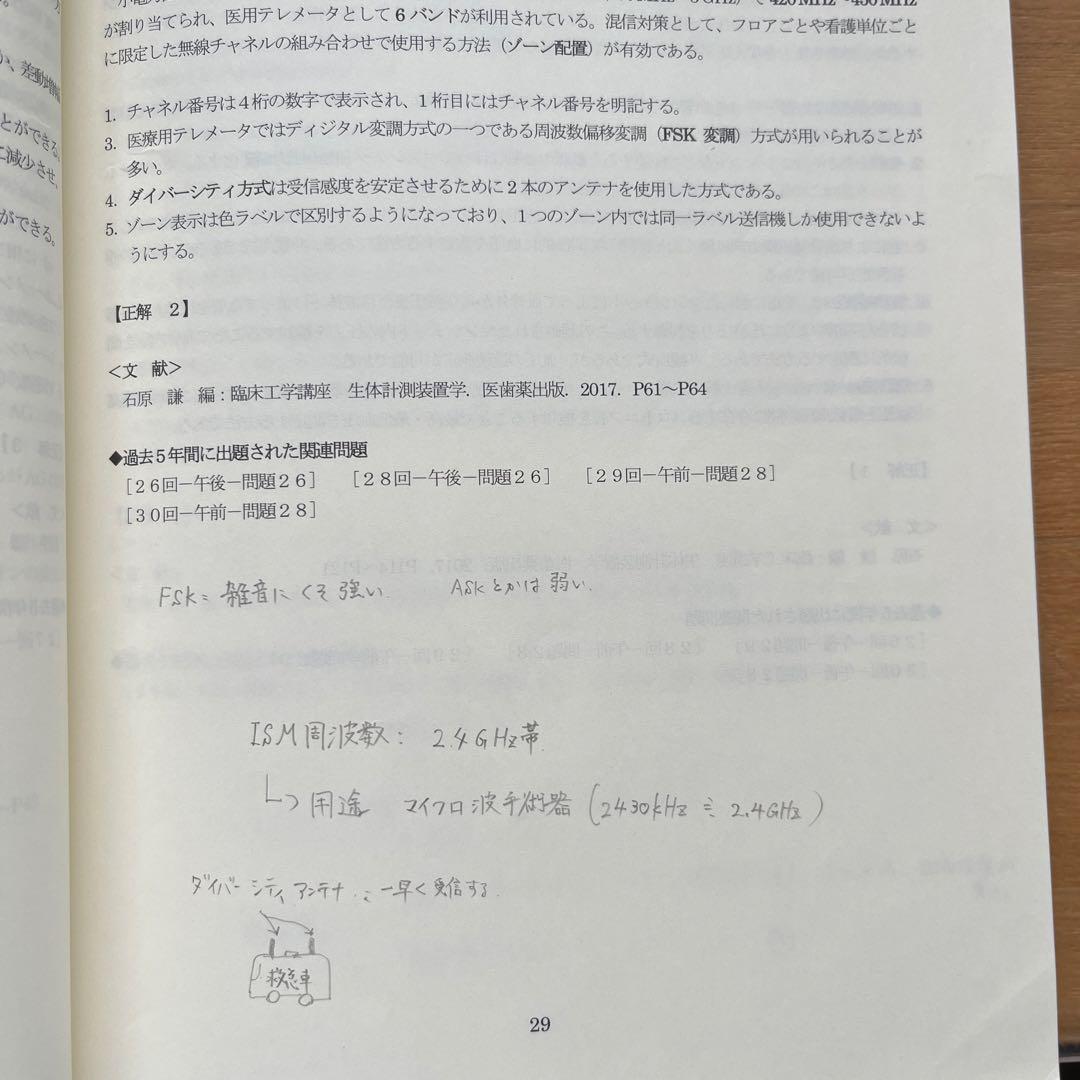 が割り当てられ、医用テレメータとして6バンドが利用されている。混信対策として、フロアごとや看護単位ごと
に限定した無線チャネルの組み合わせで使用する方法（ゾーン配置）が有効である。
1. チャネル番号は4桁の数字で表示され、1桁目にはチャネル番号を明記する。
3. 医療用テレメータではディジタル変調方式の一つである周波数偏移変調（FSK 変調）方式が用いられることが
多い。
4. ダイバーシティ方式は受信感度を安定させるために2本のアンテナを使用した方式である。
5. ゾーン表示は色ラベルで区別するようになっており、1つのゾーン内では同一ラベル送信機しか使用できないよ
うにする。
【正解　2】
<文　献>
石原　謙　編：臨床工学講座　生体計測装置学．医歯薬出版．2017．P61～P64
◆過去5年間に出題された関連問題
［26回－午後－問題26］　［28回－午後－問題26］　［29回－午前－問題28］
［30回－午前－問題28］
FSK：雑音にくそ強い．　ASKとかは弱い．
ISM周波数：2.4GHz帯
↳用途　マイクロ波手術器（2430kHz≒2.4GHz）
ダイバーシティアンテナ：一早く受信する．
救急車
29